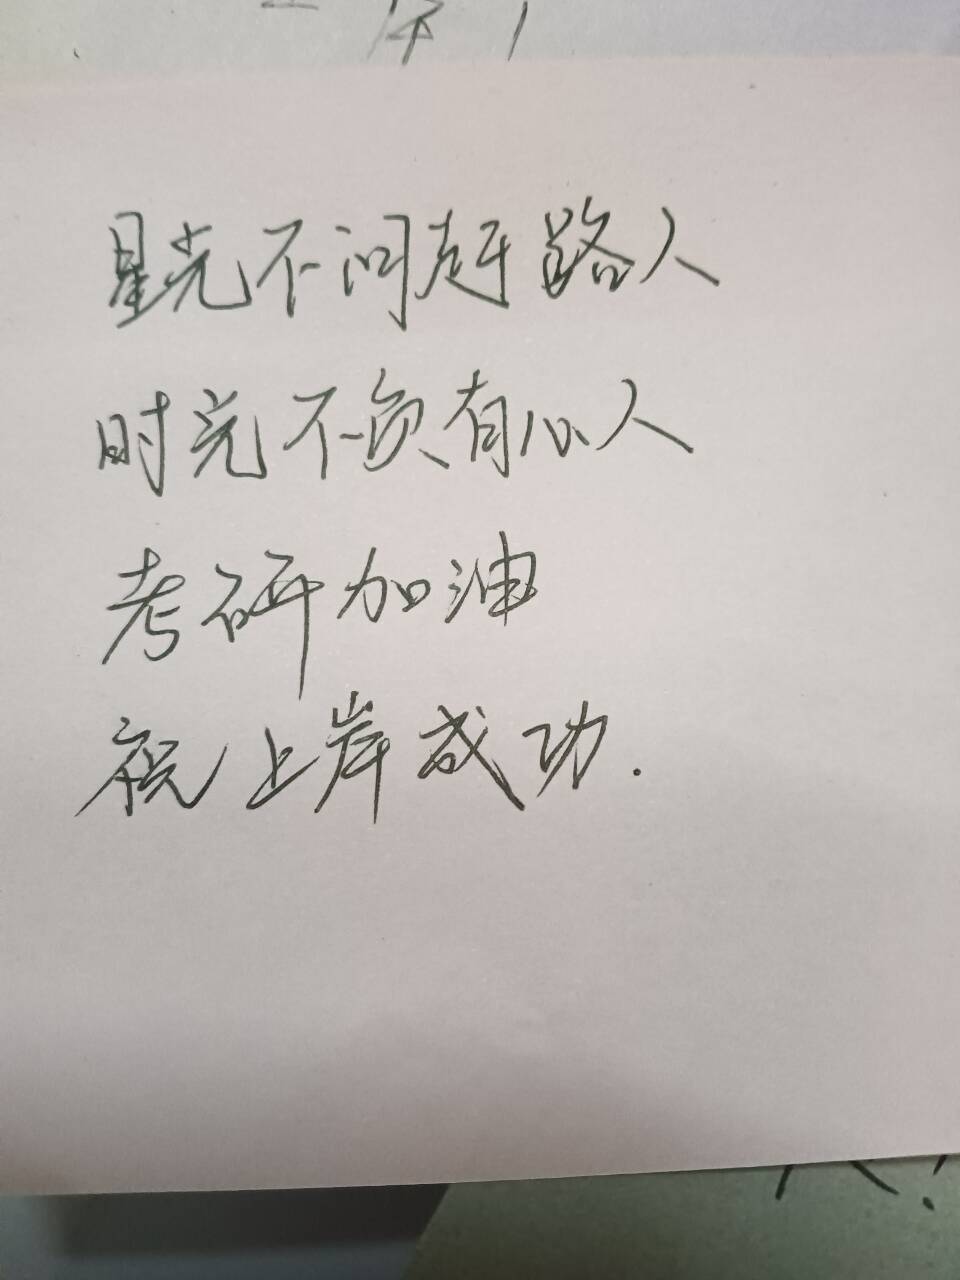 星光不问赶路人
时光不负有心人
考研加油
祝上岸成功.